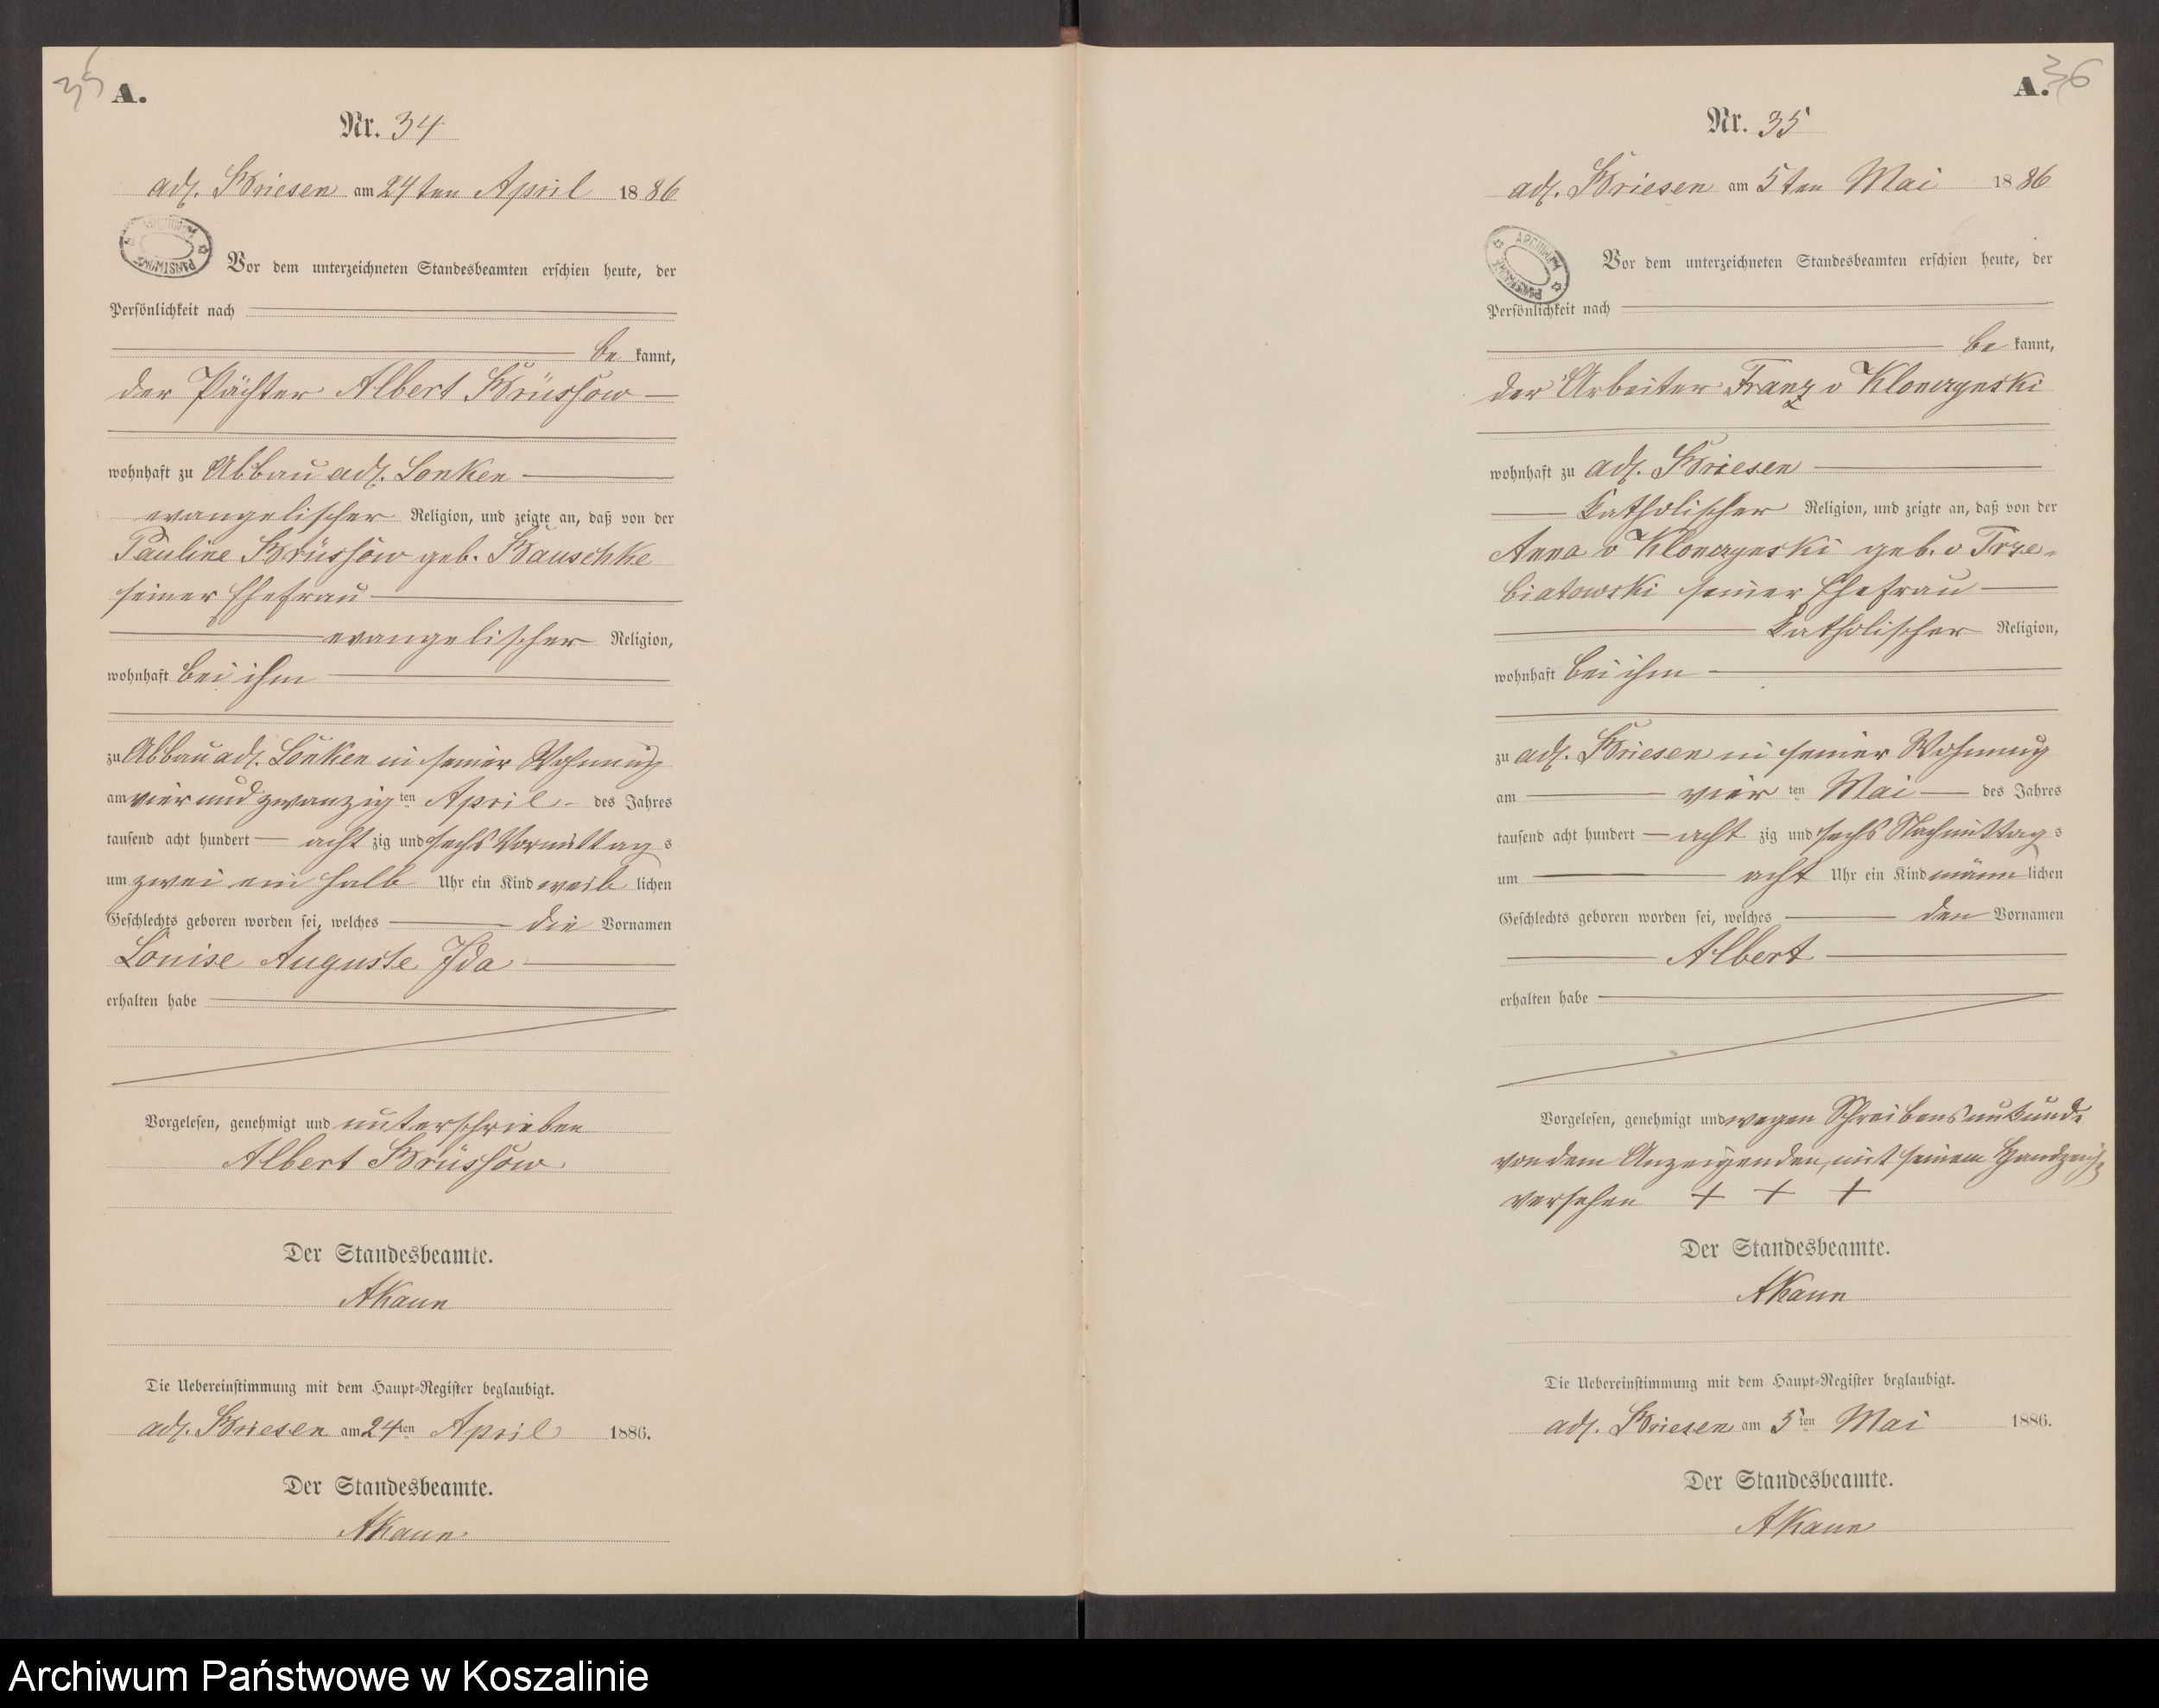 35
A.
Nr. 34
adl. Briesen am 24ten April 1886
Vor dem unterzeichneten Standesbeamten erschien heute, der
Persönlichkeit nach
be kannt,
der Pächter Albert Brüssow
wohnhaft zu Abbau adl. Lonken
evangelischer Religion, und zeigte an, daß von der
Pauline Brüssow geb. Bauschke
seiner Ehefrau
evangelischer Religion,
wohnhaft bei ihm
zu Abbau adl. Lonken in seiner Wohnung
am vier und zwanzig ten April des Jahres
tausend acht hundert acht zig und sechs Vormittag s
um zwei ein halb Uhr ein Kind weib lichen
Geschlechts geboren worden sei, welches die Vornamen
Louise Auguste Ida
erhalten habe
Vorgelesen, genehmigt und unterschrieben
Albert Brüssow
Der Standesbeamte.
Die Uebereinstimmung mit dem Haupt-Register beglaubigt.
adl. Briesen am 24ten April 1886.
Der Standesbeamte.
36
A.
Nr. 35
adl. Briesen am 5ten Mai 1886
ARCHIWUM PAŃSTWOWE
Vor dem unterzeichneten Standesbeamten erschien heute, der
Persönlichkeit nach
be kannt,
der Arbeiter Franz v Klonczynski
wohnhaft zu adl. Briesen
katholischer Religion, und zeigte an, daß von der
Anna v Klonczynski geb. v Trze-
biatowski seiner Ehefrau
katholischer Religion,
wohnhaft bei ihm
zu adl. Briesen in seiner Wohnung
am vier ten Mai des Jahres
tausend acht hundert acht zig und sechs Nachmittag s
um acht Uhr ein Kind männ lichen
Geschlechts geboren worden sei, welches den Vornamen
Albert
erhalten habe
Vorgelesen, genehmigt und wegen Schreibensunkunde
von dem Anzeigenden, mit seinem
versehen + + +
Der Standesbeamte.
Die Uebereinstimmung mit dem Haupt-Register beglaubigt.
adl. Briesen am 5ten Mai 1886.
Der Standesbeamte.
Archiwum Państwowe w Koszalinie